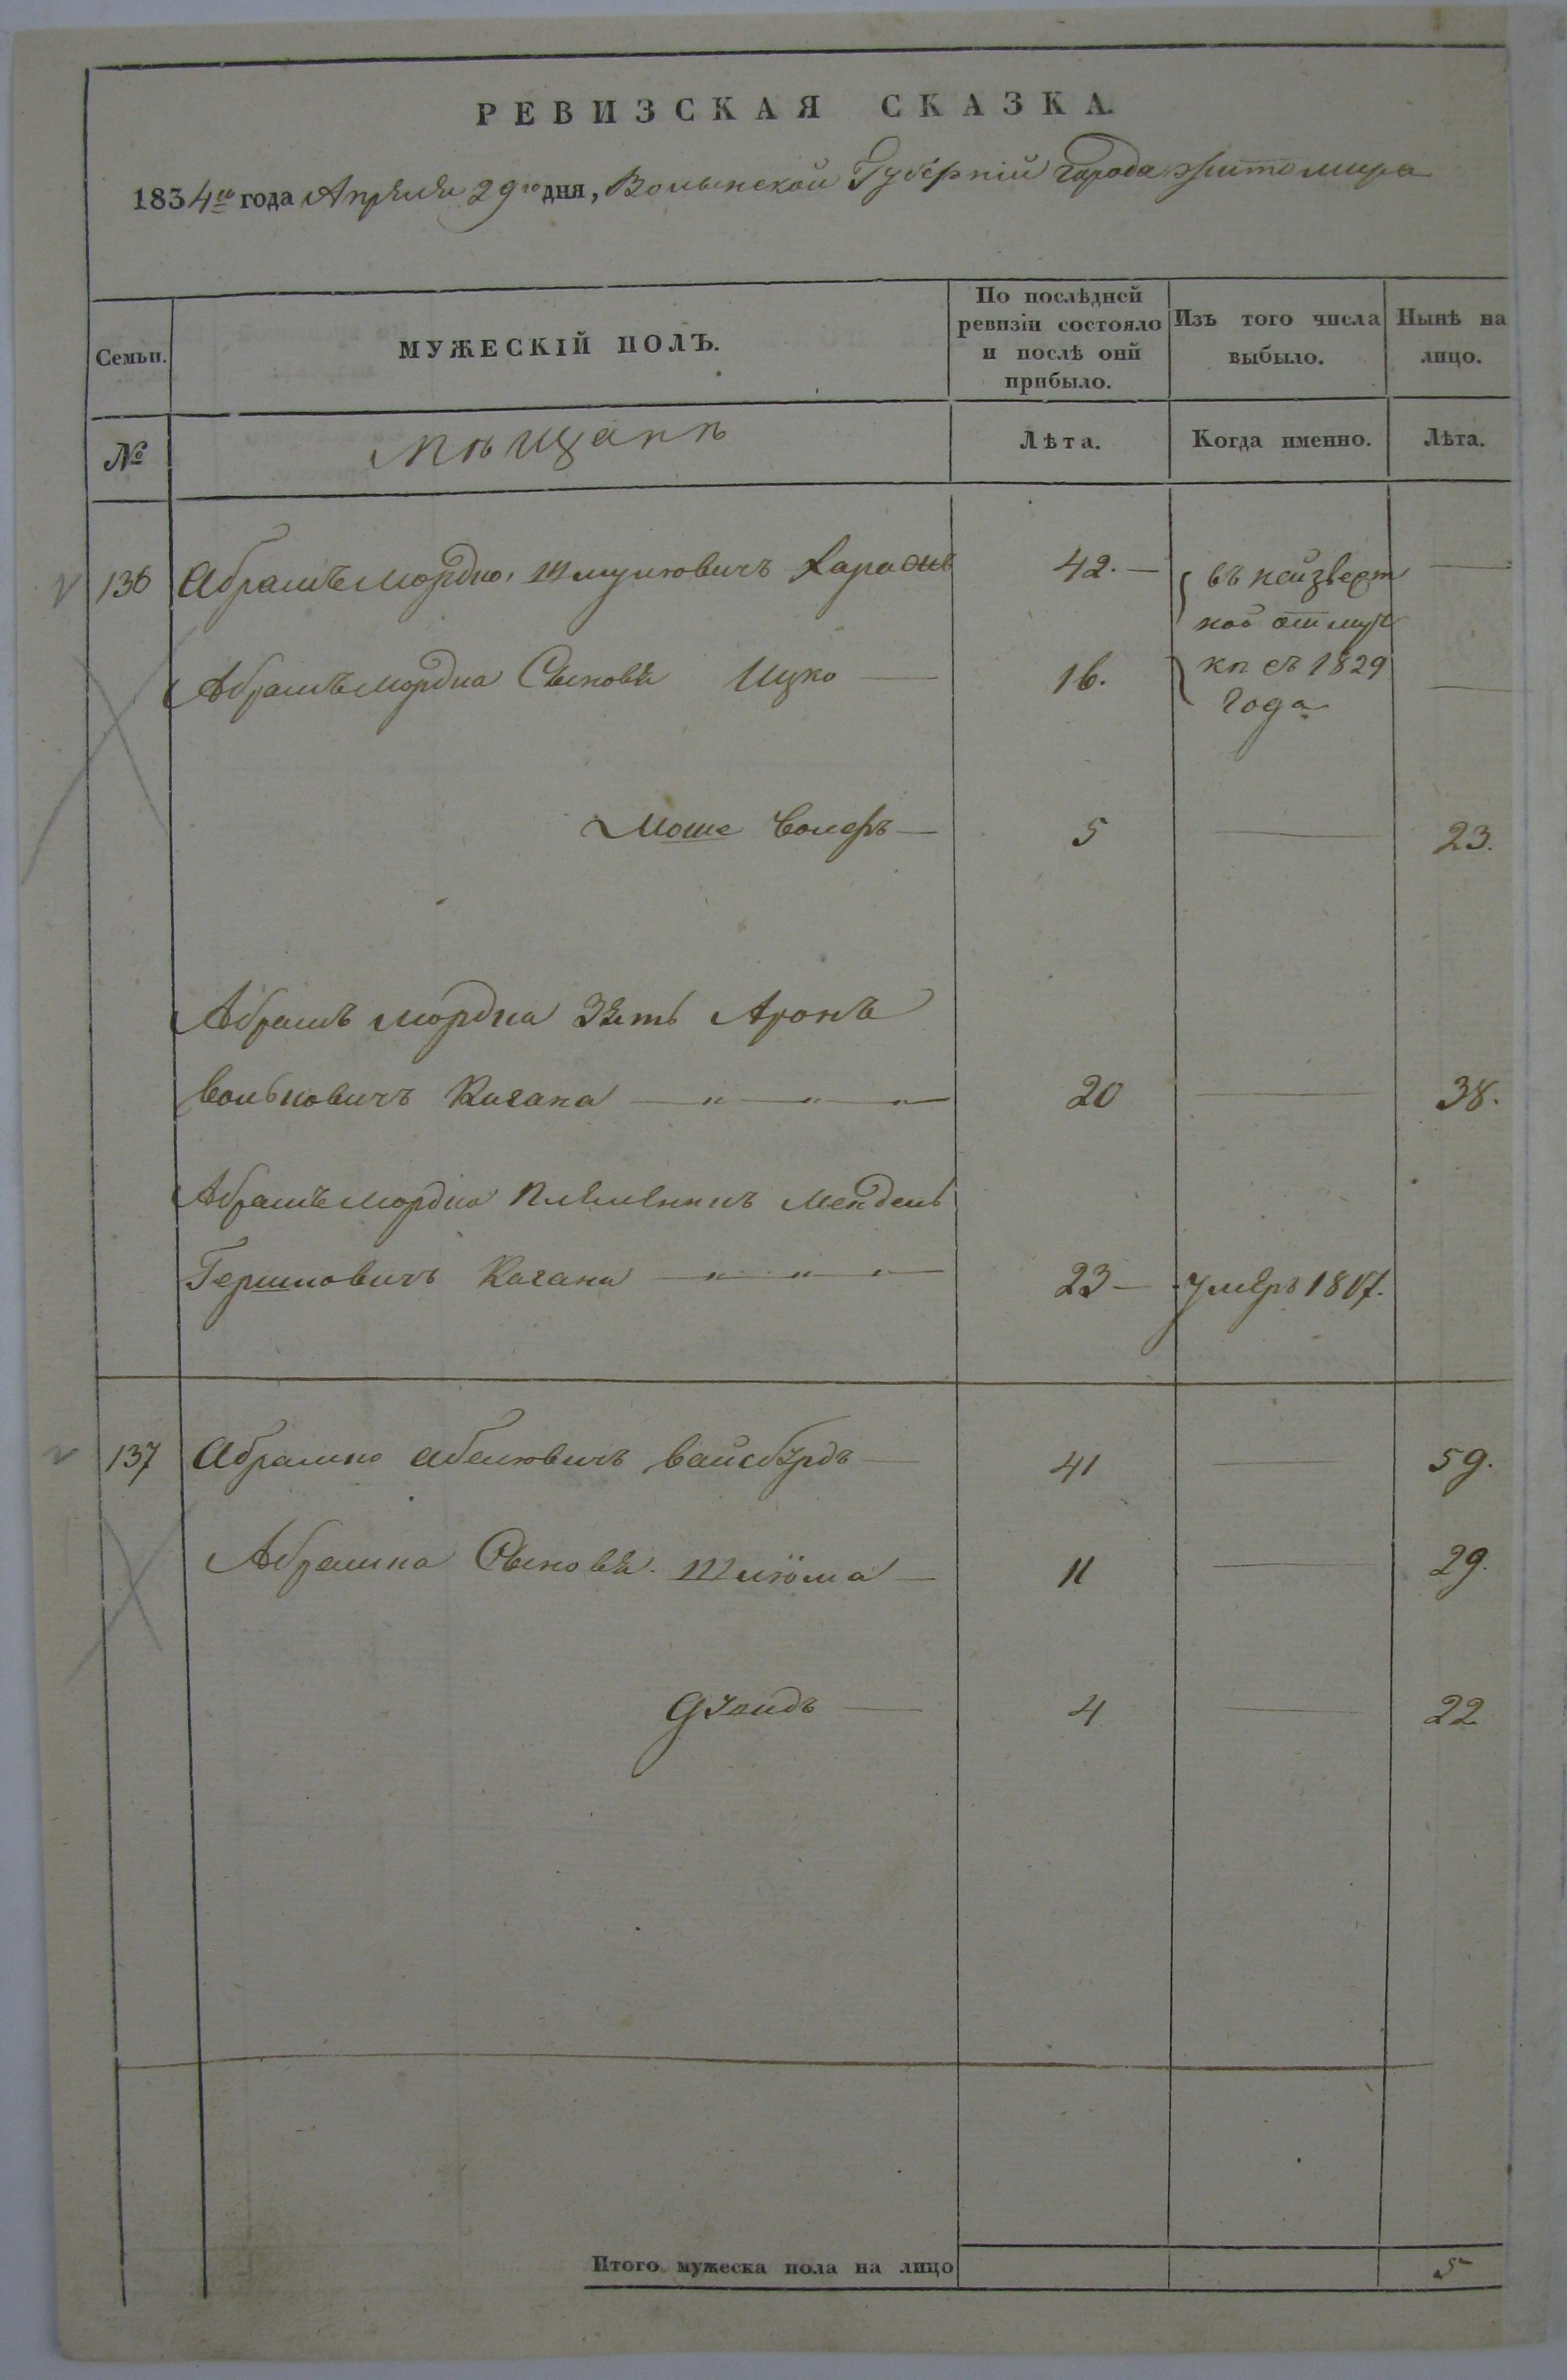 РЕВИЗСКАЯ СКАЗКА.
1834го года Апреля 29го дня, Волынской Губерніи города Житомира
Семьи. МУЖЕСКІЙ ПОЛЪ. По послѣдней ревизіи состояло и послѣ оній прибыло. Изъ того числа выбыло. Нынѣ на лицо.
№ мѣщанъ Лѣта. Когда именно. Лѣта.
136 Абрамъ Мордко Шмулювичъ 42. —
въ неизвест
ной отлуч
ки съ 1829
года
Абрамъ Мордка Сыновя Ицко — 16.
Моше Волфъ — 5 — 23.
Абрамъ Мордка Зять Аронъ
Волковичъ Кагана — " — " — " — 20 — 38.
Абрамъ Мордка племенникъ Мендель
Гершковичъ Кагана — " — " — " — 23 — умеръ 1817.
137 Абрамко Абелювичъ Вайсбурдъ — 41 — 59.
Абрамка Сыновя. Шлiома — 11 — 29.
Дувидъ — 4 — 22
Итого мужеска пола на лицо 5